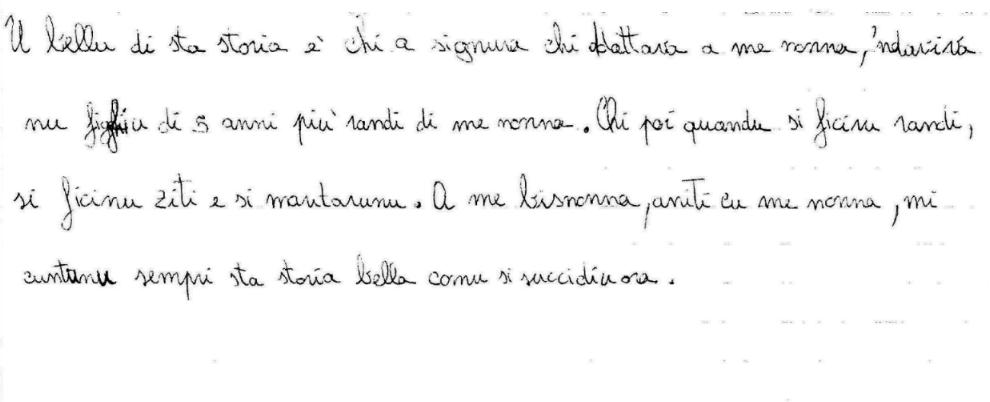 U bellu di sta storia è chi a signura chi ddattava a me nonna, 'ndavivá
nu figghiu di 5 anni più randi di me nonna. Chi poi quandu si ficinu randi,
si ficinu ziti e si maritarunu. A me bisnonna, aniti cu me nonna, mi
cuntunu sempri sta storia bella comu si succidiu ora.